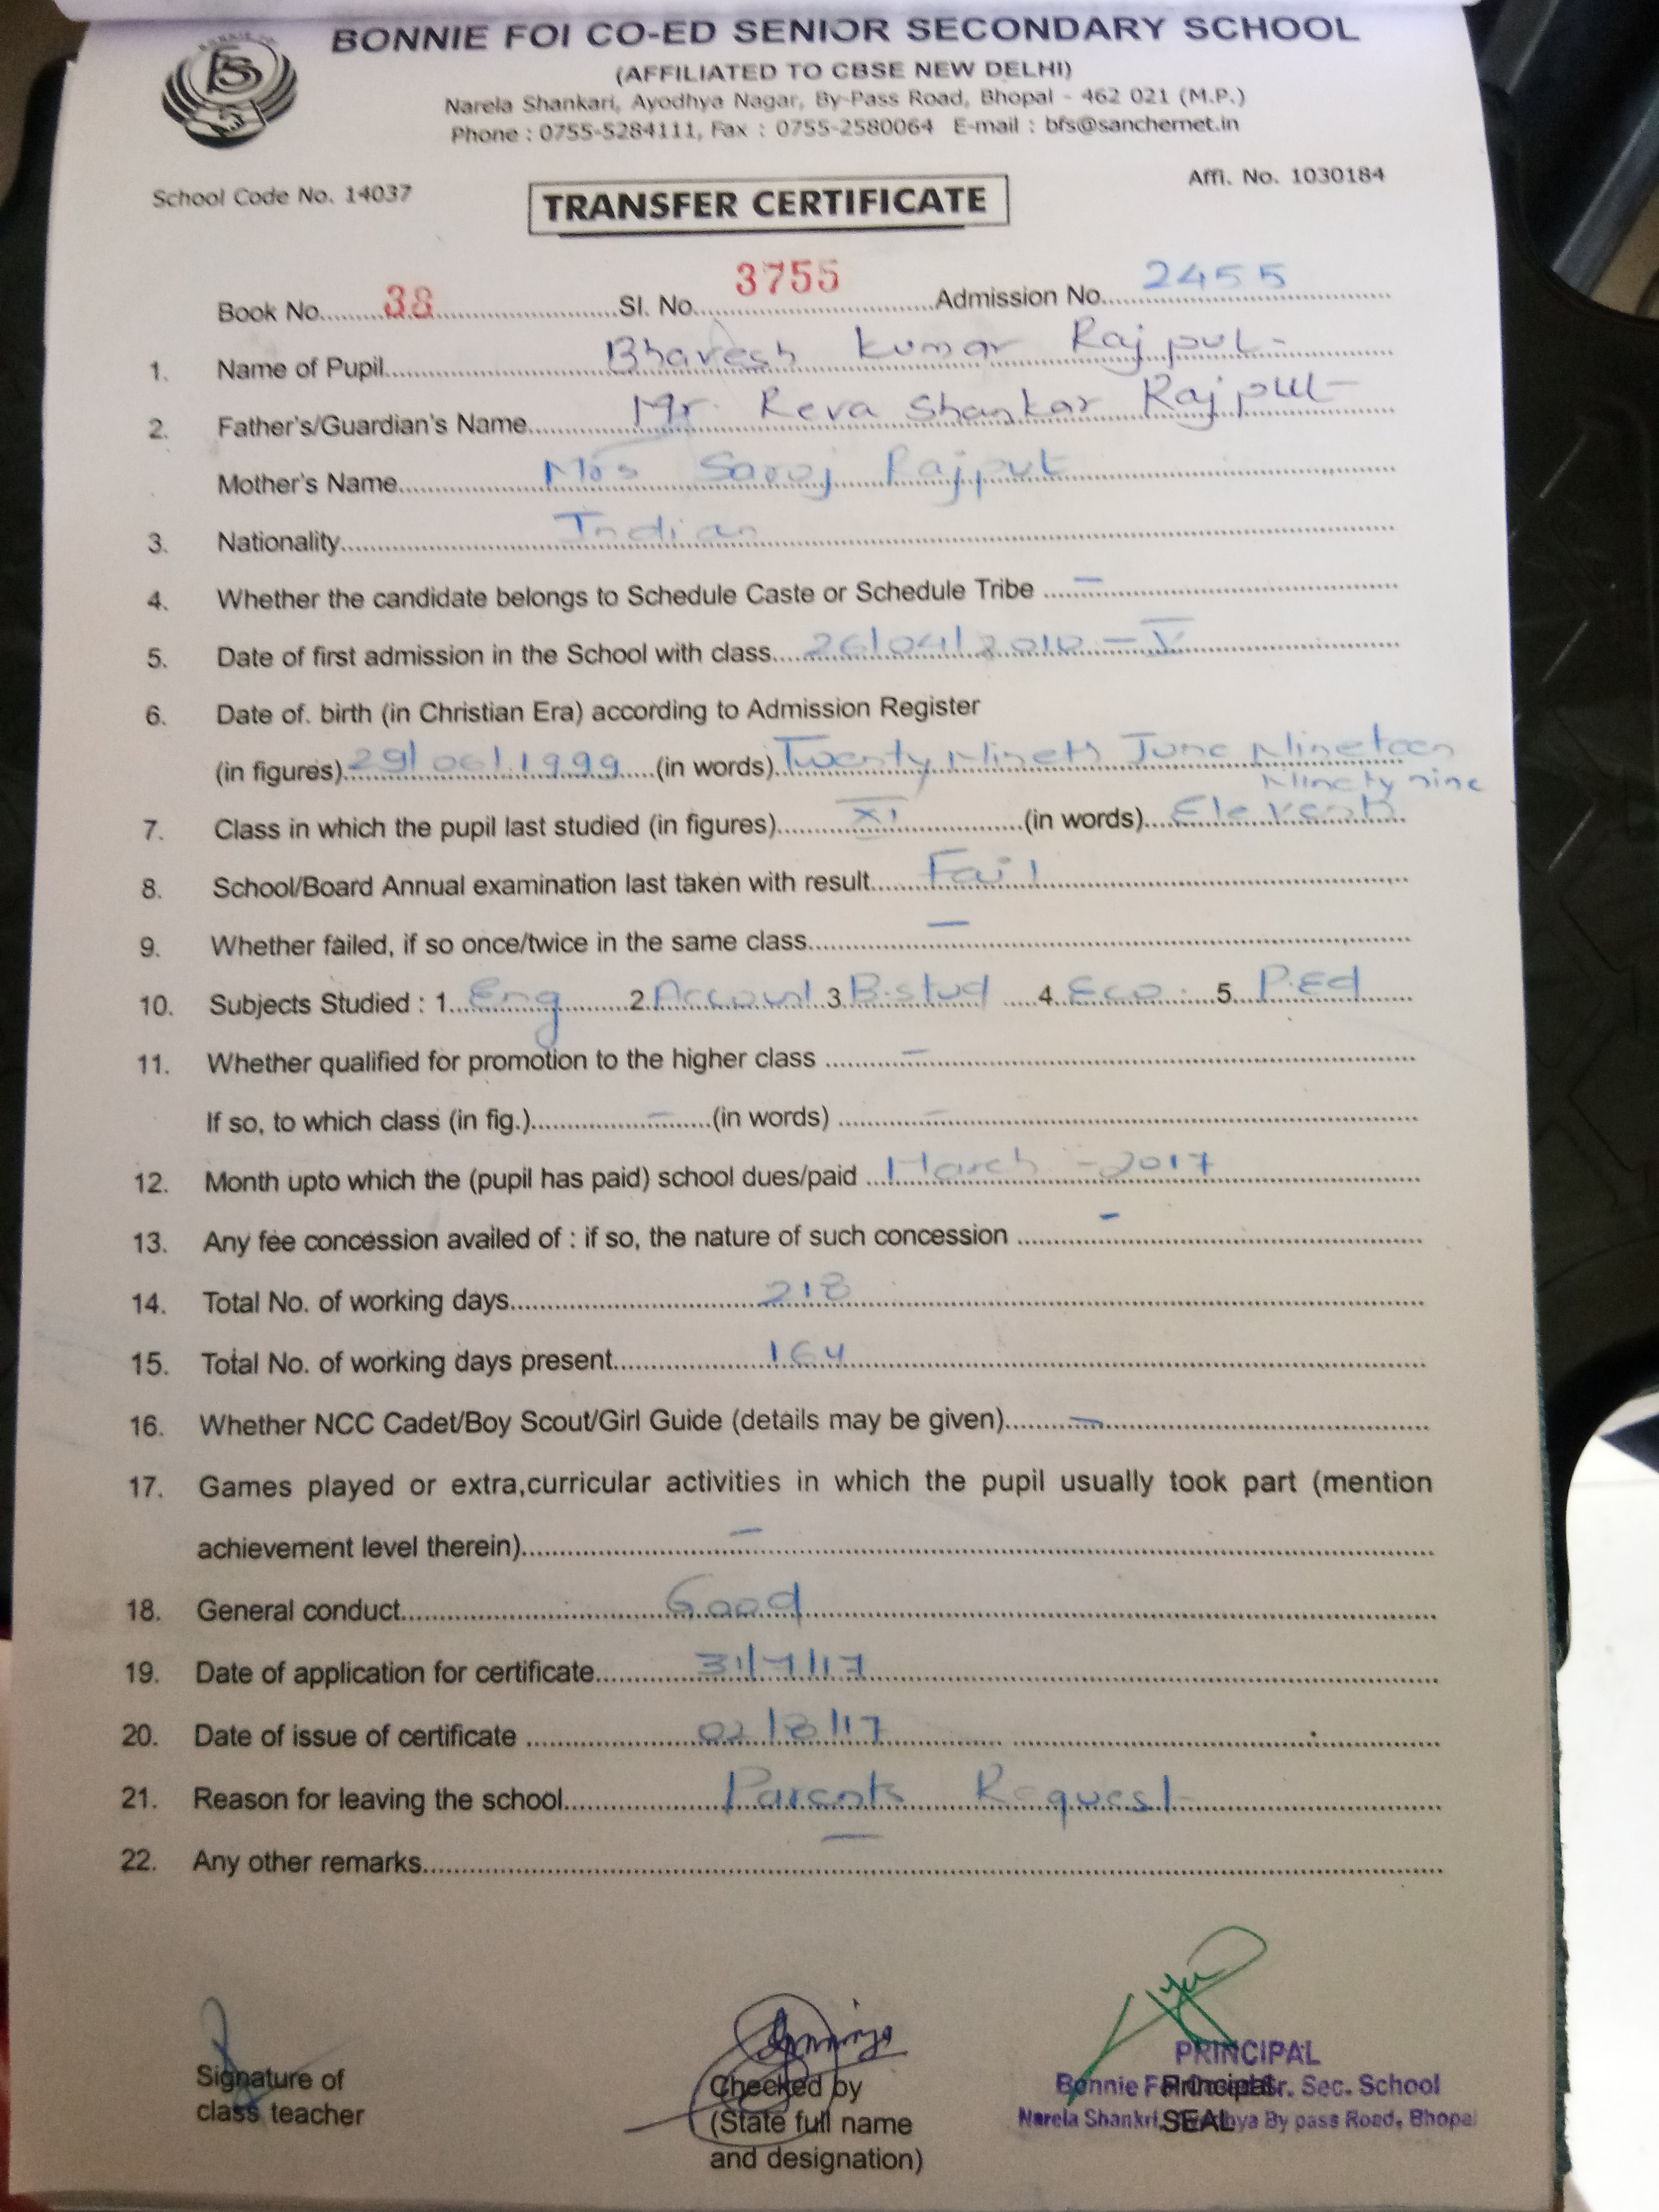 BONNIE FOI CO-ED SENIOR SECONDARY SCHOOL
(AFFILIATED TO CBSE NEW DELHI)
Narela Shankari, Ayodhya Nagar, By-Pass Road, Bhopal - 462 021 (M.P.)
Phone : 0755-5284111, Fax : 0755-2580064 E-mail : bfs@sanchernet.in
School Code No. 14037
Affi. No. 1030184
TRANSFER CERTIFICATE
Book No. 38 Sl. No. 3755 Admission No. 2455
1. Name of Pupil Bhavesh Kumar Rajput
2. Father's/Guardian's Name Mr. Reva Shankar Rajput
Mother's Name Mrs Saroj Rajput
3. Nationality Indian
4. Whether the candidate belongs to Schedule Caste or Schedule Tribe —
5. Date of first admission in the School with class 26/04/2010 – V
6. Date of. birth (in Christian Era) according to Admission Register
(in figures) 29/06/1999 (in words) Twenty Nineth June Nineteen
Ninety nine
7. Class in which the pupil last studied (in figures) XI (in words) Eleventh
8. School/Board Annual examination last taken with result Fail
9. Whether failed, if so once/twice in the same class —
10. Subjects Studied : 1. Eng 2. Account 3. B.stud 4. Eco. 5. P.Ed
11. Whether qualified for promotion to the higher class —
If so, to which class (in fig.) — (in words) —
12. Month upto which the (pupil has paid) school dues/paid March - 2017
13. Any fee concession availed of : if so, the nature of such concession -
14. Total No. of working days 218
15. Total No. of working days present 164
16. Whether NCC Cadet/Boy Scout/Girl Guide (details may be given) —
17. Games played or extra,curricular activities in which the pupil usually took part (mention
achievement level therein) —
18. General conduct Good
19. Date of application for certificate 31/7/17
20. Date of issue of certificate 02/8/17
21. Reason for leaving the school Parents Request
22. Any other remarks —
Signature of
class teacher
Checked by
(State full name
and designation)
PRINCIPAL
Principal
Bonnie Sr. Sec. School
SEAL
Narela Shankri, By pass Road, Bhopal